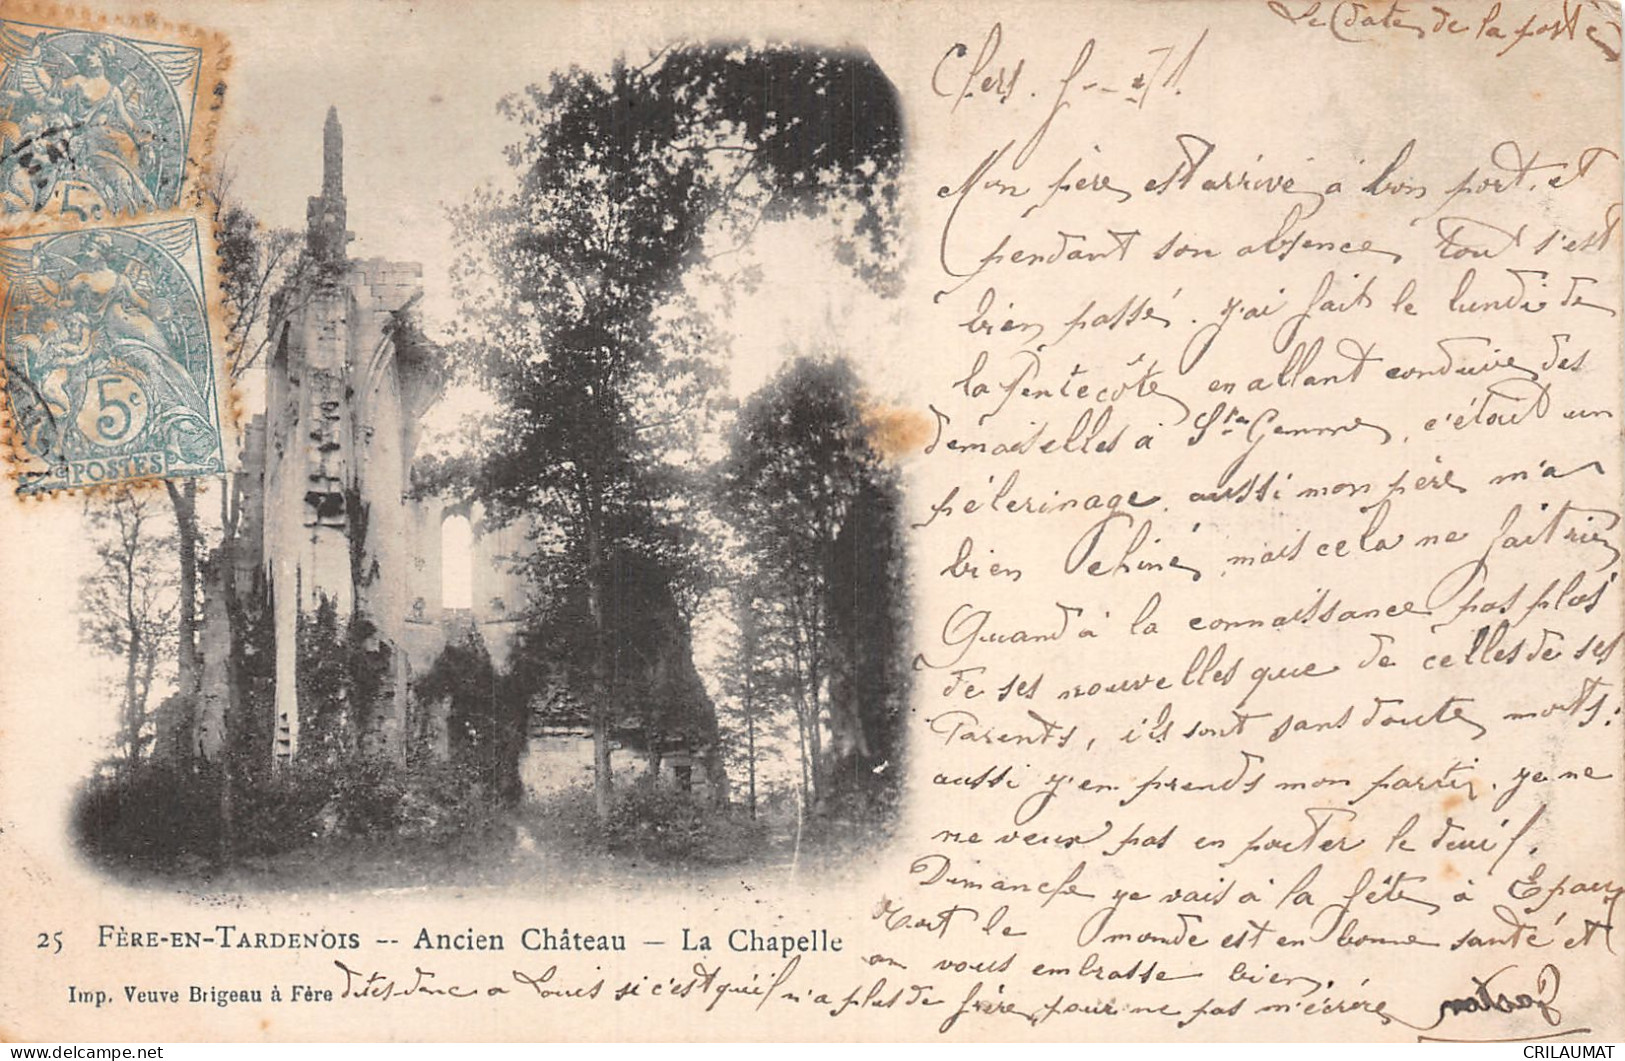 Le Date de la poste
Chers
Mon père est arrivé à bon port, et
pendant son absence, tout s'est
bien passé. J'ai fait le lundi de
la Pentecôte en allant conduire des
demoiselles à Ste Gemme, c'était un
pèlerinage, aussi mon père m'a
bien chiné, mais cela ne fait rien
Quand à la connaissance pas plus
de ses nouvelles que de celles de ses
Parents, ils sont sans doute morts:
aussi j'en prends mon parti, je ne
ne veux pas en porter le deuil.
Dimanche je vais à la fête à Epaux
Tout le monde est en bonne santé et
on vous embrasse bien.
dites donc a Louis si c'est qu'il n'a plus de frère, pour ne pas m'écrire
Gaston
5c
5c
POSTES
25 FÈRE-EN-TARDENOIS -- Ancien Château — La Chapelle
Imp. Veuve Brigeau à Fère
CRILAUMAT